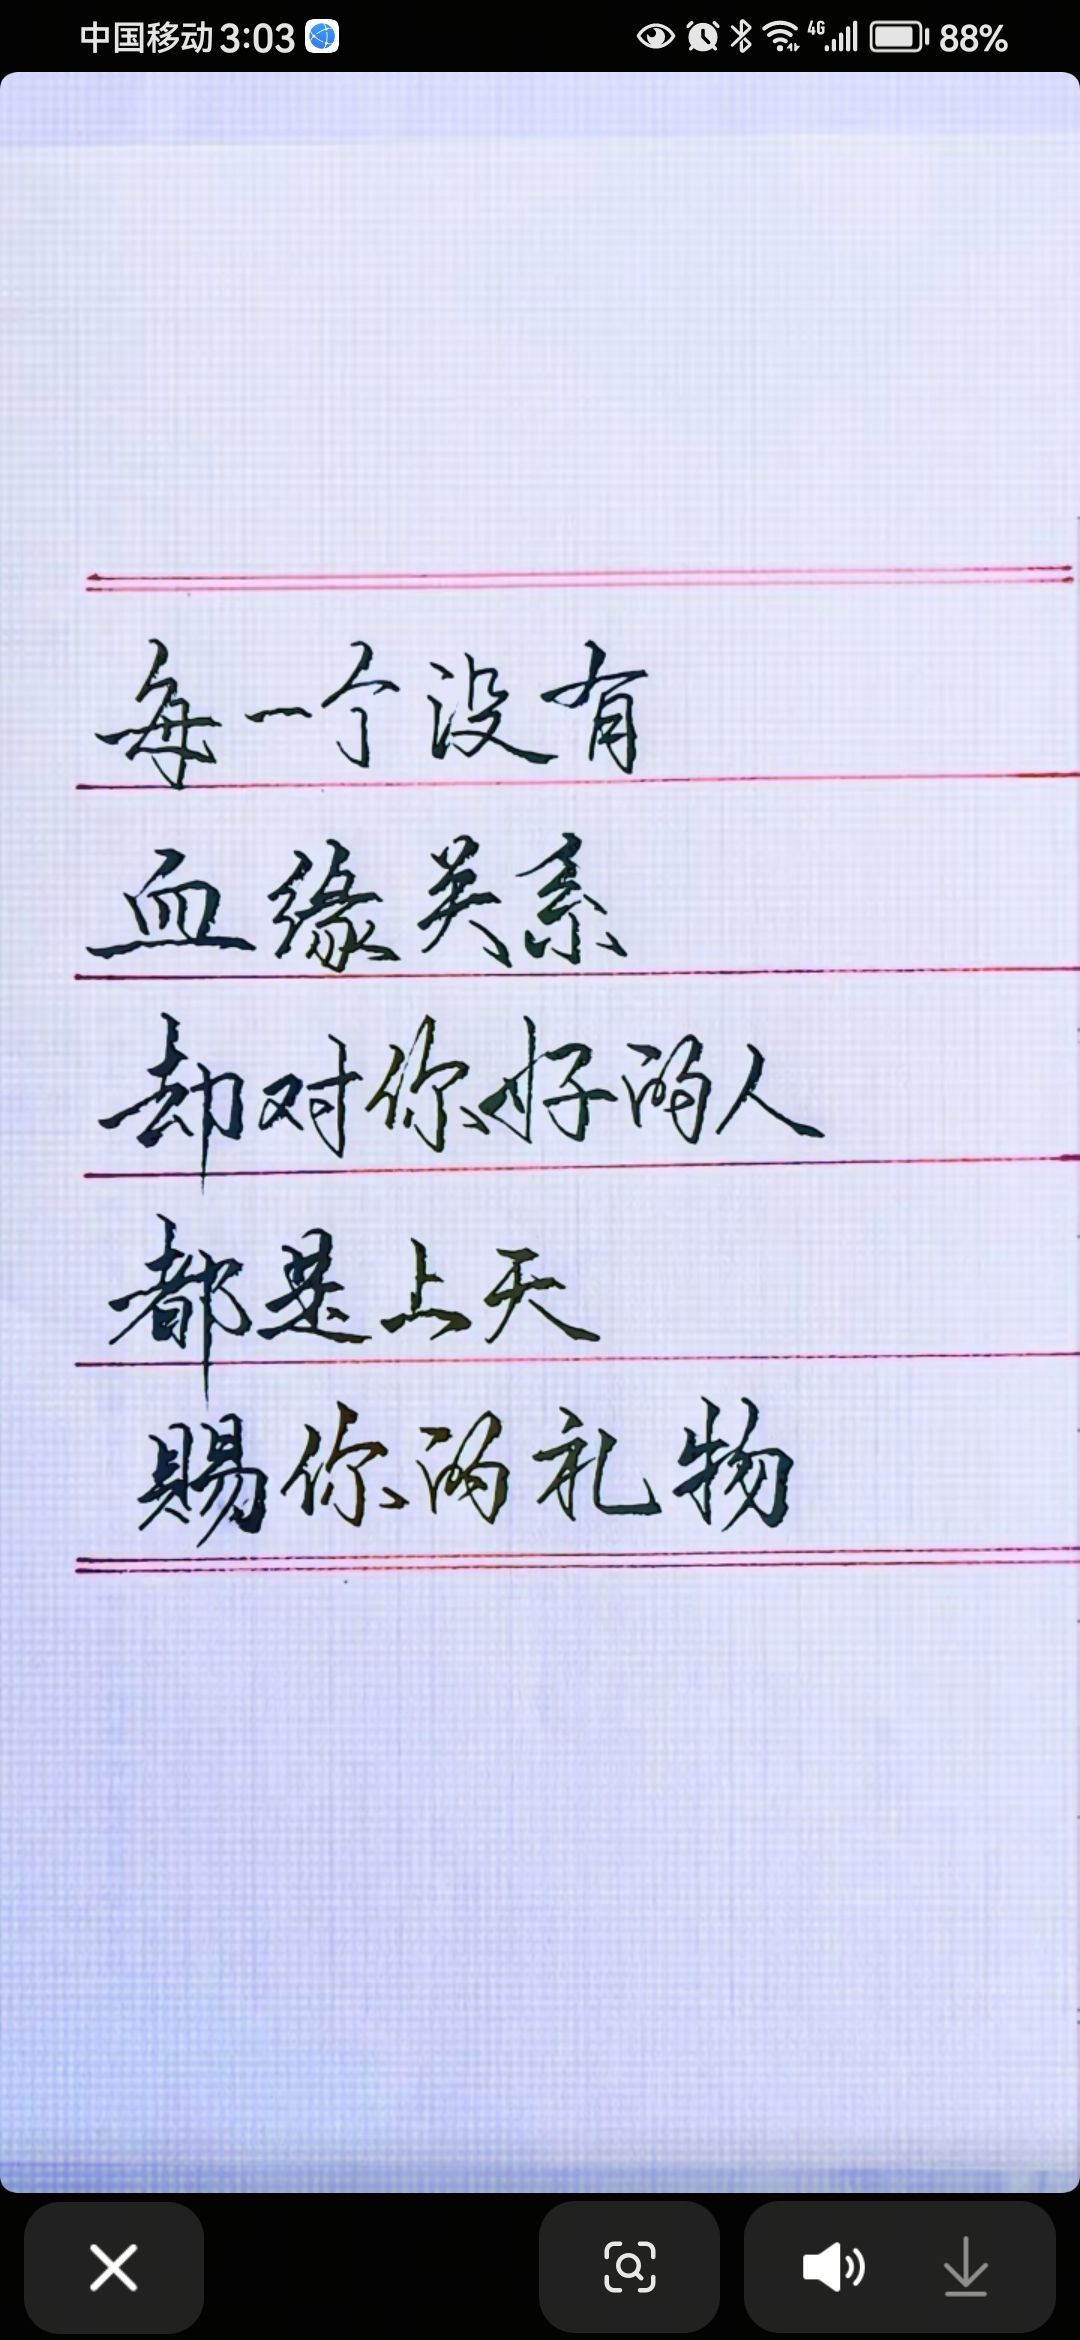 中国移动 3:03 4G 88%
每一个没有
血缘关系
却对你好的人
都是上天
赐你的礼物